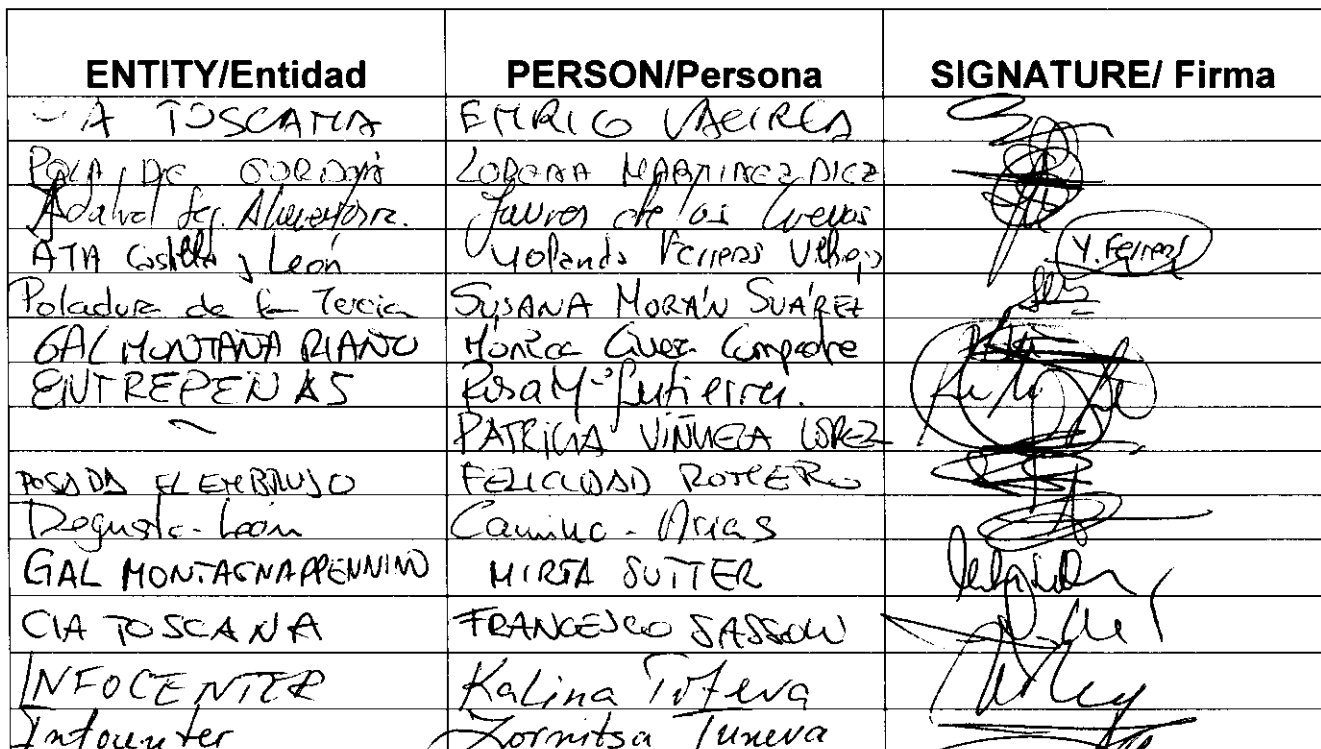 ENTITY/Entidad PERSON/Persona SIGNATURE/ Firma
A TOSCANA ENRICO VACIRCA
POLA DE GORDON LORENA MARTINEZ DIEZ
Adalval Seg. Alimentaria. de las Cuevas
ATA Castilla y León Yolanda Ferreras Y. Ferreras
Poladura de la Tercia SUSANA MORÁN SUÁREZ
GAL MONTAÑA RIAÑO Mónica Compadre
ENTREPEÑAS Rosa Mª Gutierrez.
PATRICIA VIÑUELA LOPEZ
POSADA EL EMBRUJO FELICIDAD ROMERO
Degusta-León Camino - Arias
GAL MONTAGNAPPENNINO MIRTA SUTTER
CIA TOSCANA FRANCESCO SASSOLI
INFOCENTER Kalina Tufeva
Infocenter Zornitsa Tuneva